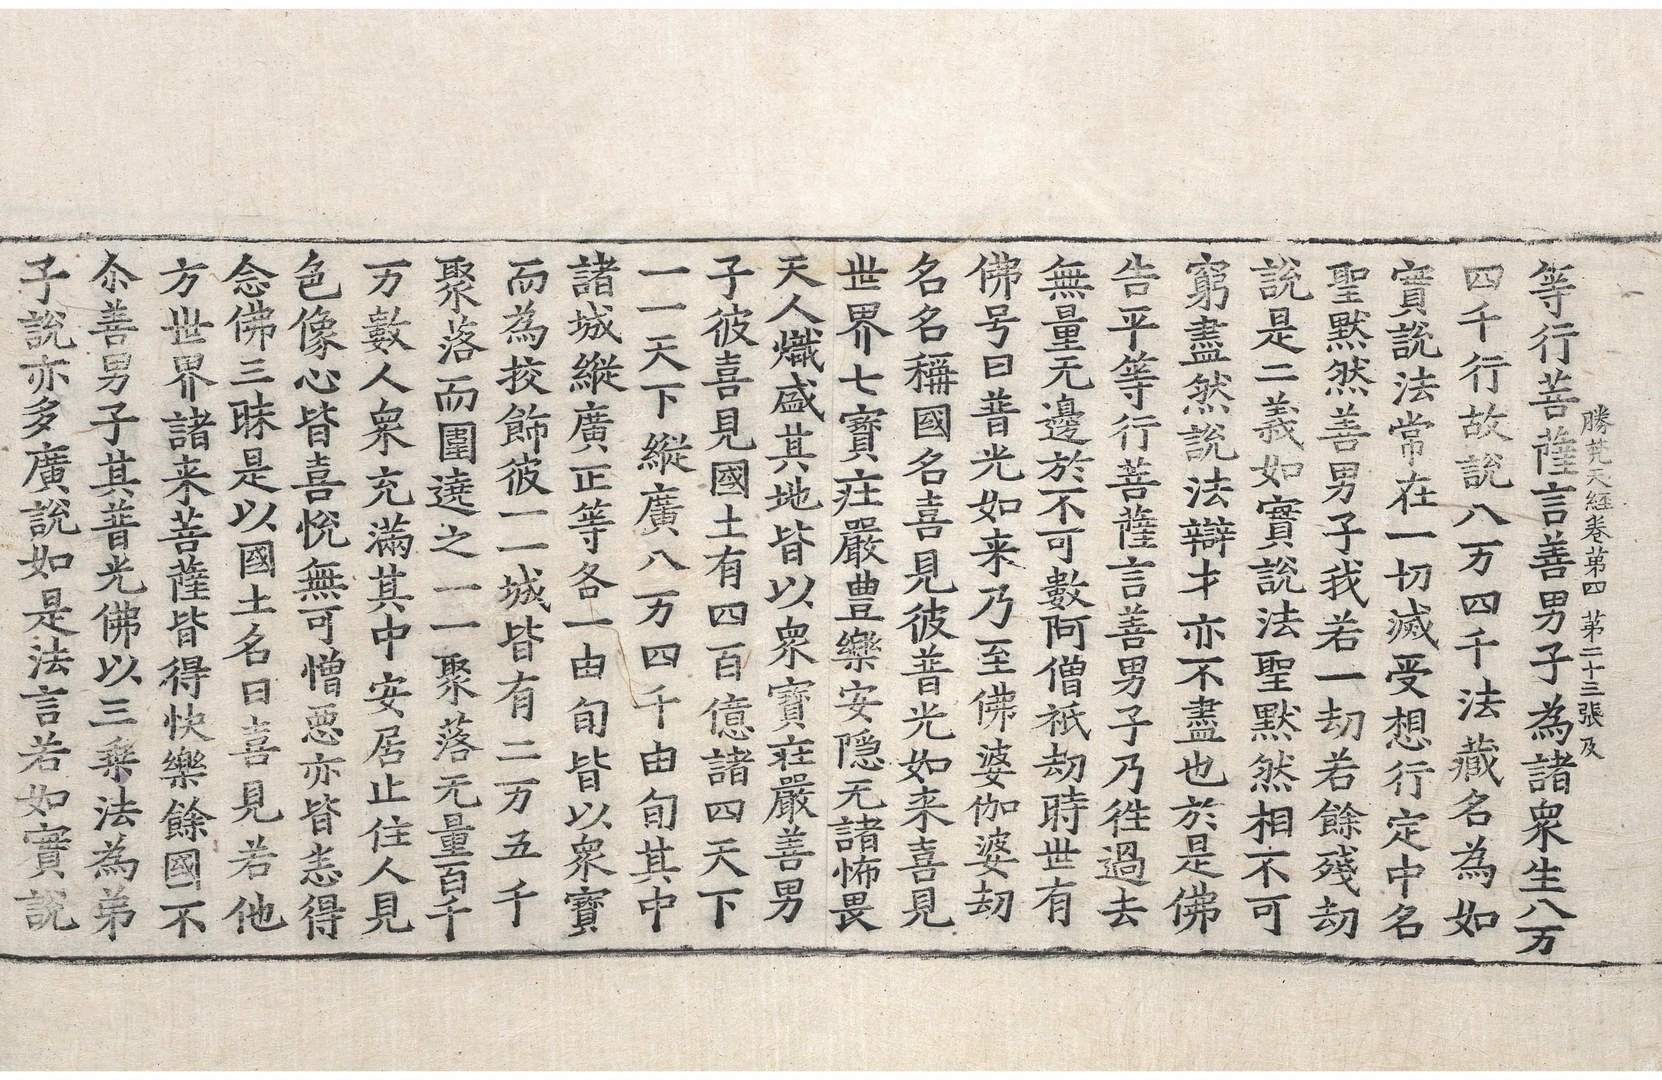 勝梵天經卷第四　第二十三張　及
等行菩薩言善男子為諸眾生八万
四千行故說八万四千法藏名為如
實說法常在一切滅受想行定中名
聖默然善男子我若一劫若餘殘劫
說是二義如實說法聖默然相不可
窮盡然說法辯才亦不盡也於是佛
告平等行菩薩言善男子乃徃過去
無量无邊於不可數阿僧祇劫時世有
佛号曰普光如来乃至佛婆伽婆劫
名名稱國名喜見彼普光如来喜見
世界七寶莊嚴豊樂安隱无諸怖畏
天人熾盛其地皆以眾寶莊嚴善男
子彼喜見國土有四百億諸四天下
一一天下縱廣八万四千由旬其中
諸城縱廣正等各一由旬皆以眾寶
而為挍飾彼一一城皆有二万五千
聚落而圍遶之一一聚落无量百千
万數人眾充滿其中安居止住人見
色像心皆喜悅無可憎惡亦皆悉得
念佛三昧是以國土名曰喜見若他
方世界諸来菩薩皆得快樂餘國不
尒善男子其普光佛以三乗法為弟
子說亦多廣說如是法言若如實說